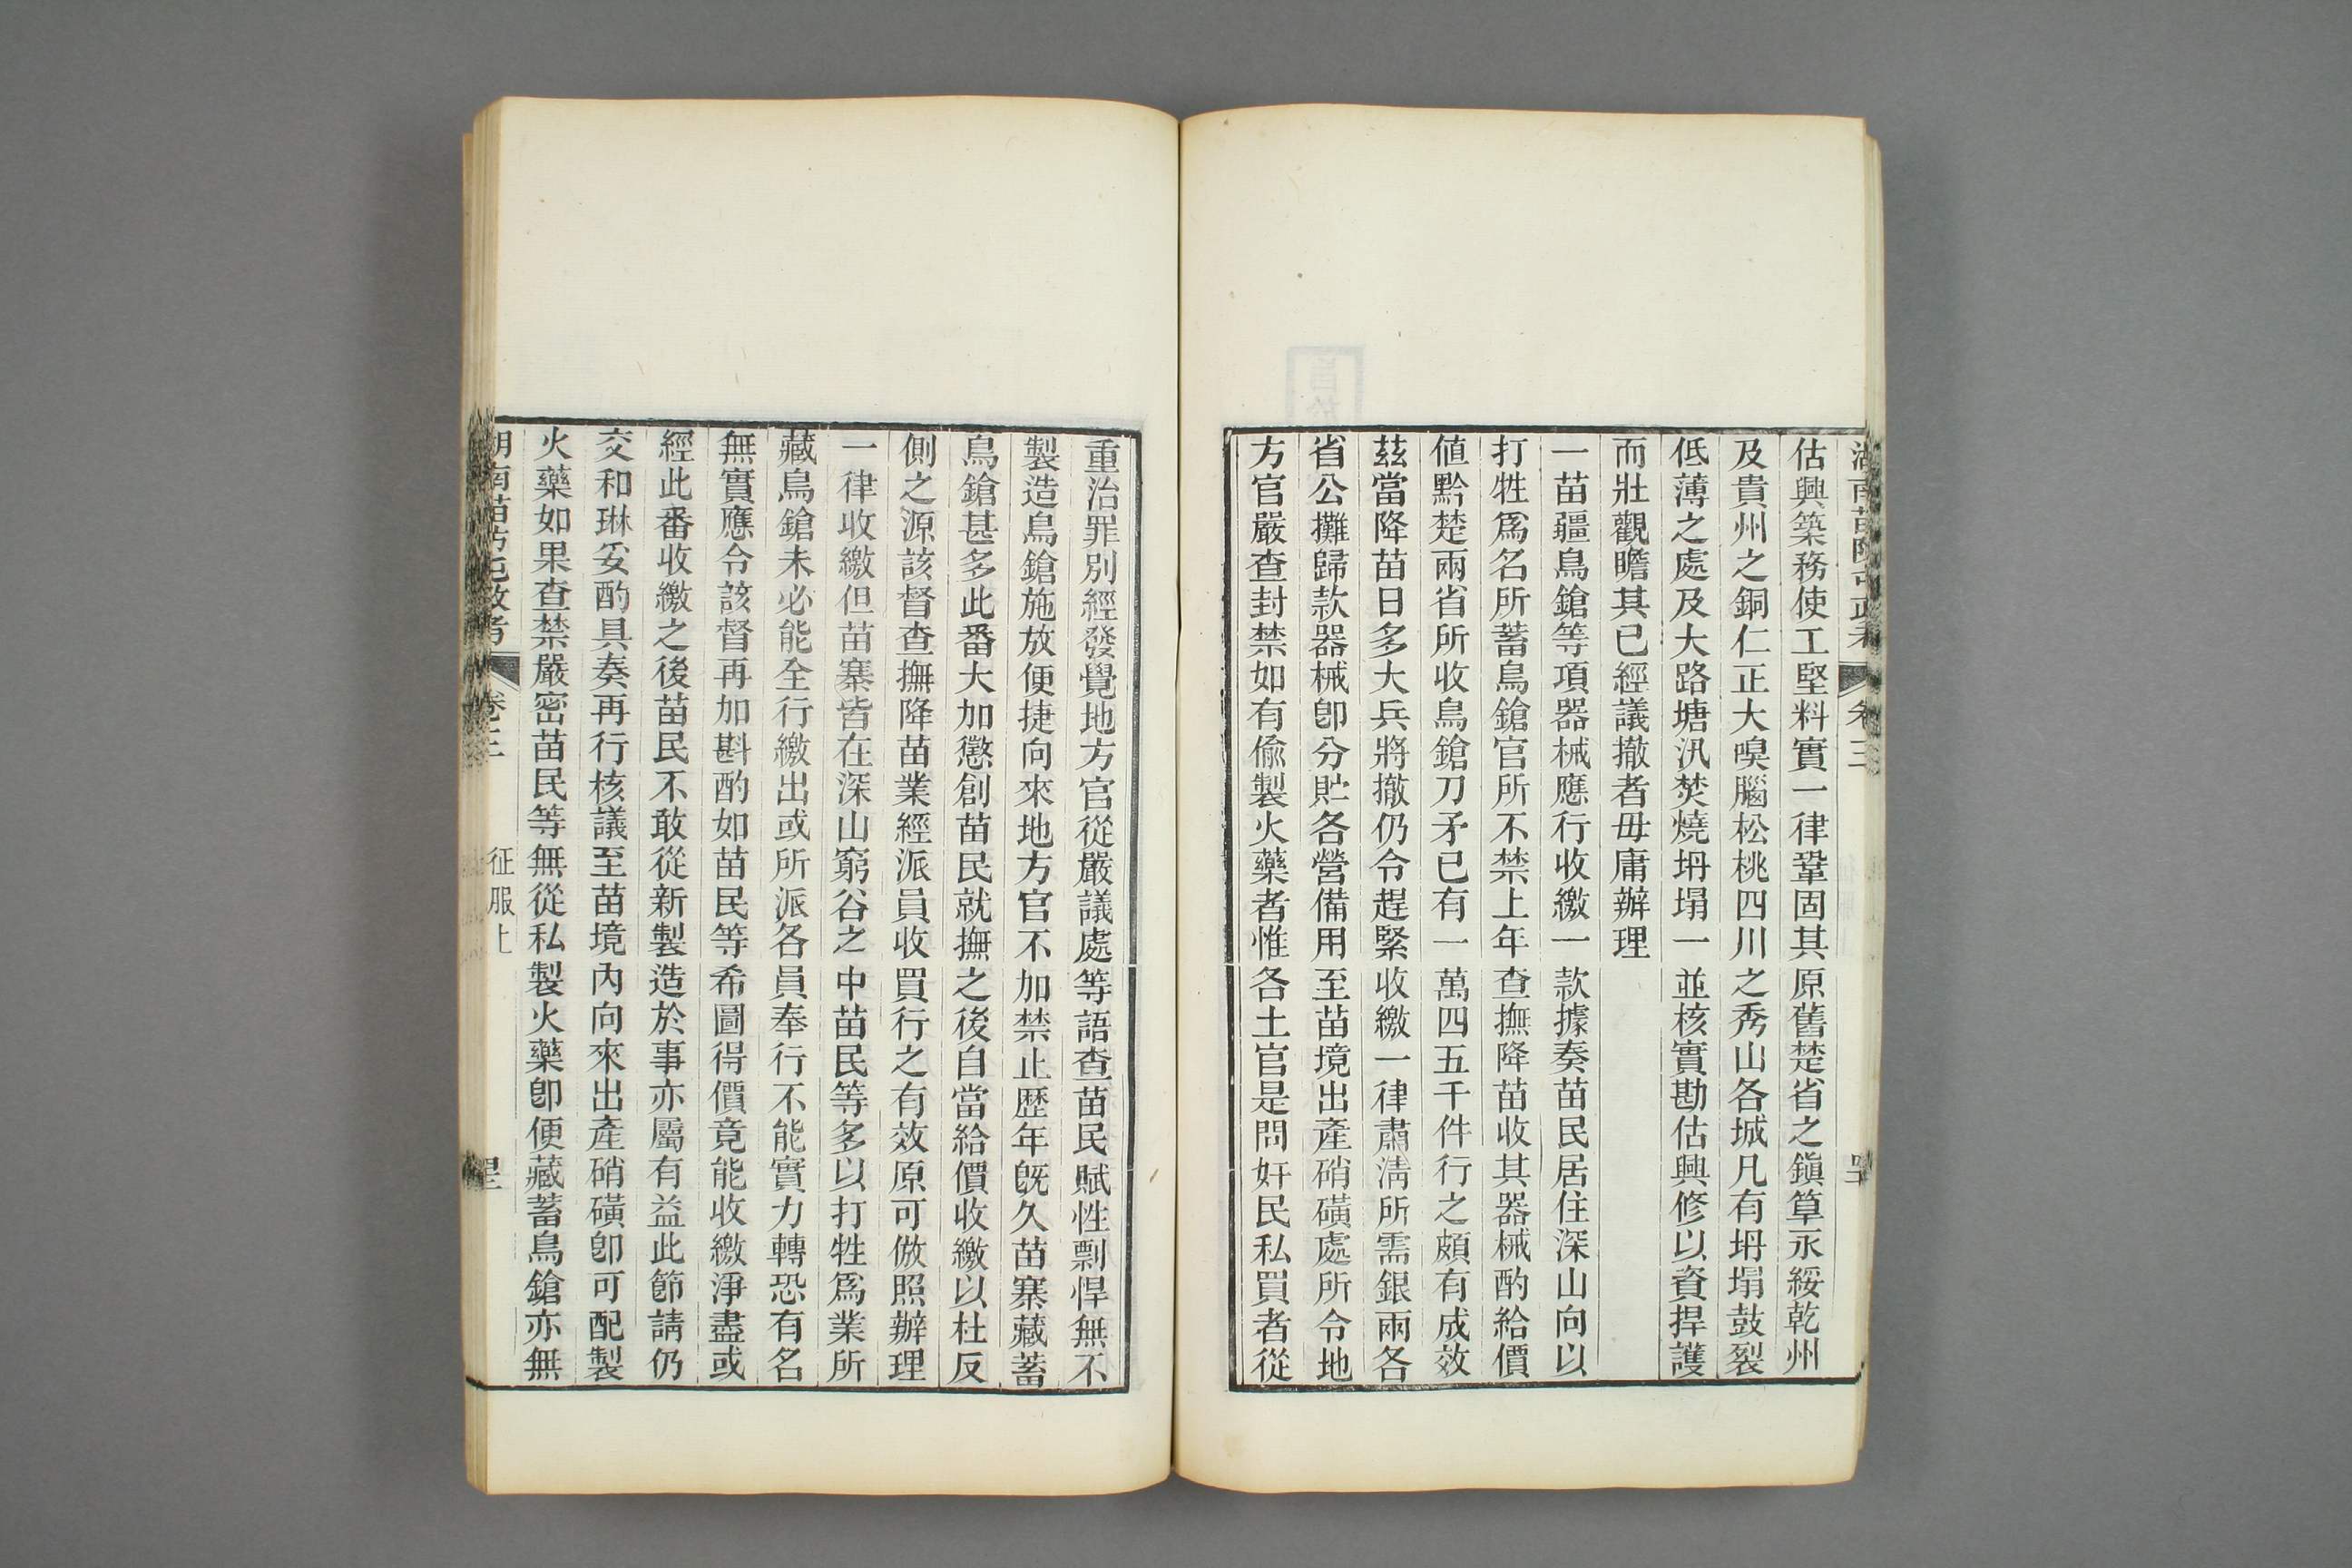 估興築務使工堅料實一律鞏固其原舊楚省之鎭筸永綏乾州
及貴州之銅仁正大嗅腦松桃四川之秀山各城凡有坍塌鼓裂
低薄之處及大路塘汛焚燒坍塌一並核實勘估興修以資捍護
而壯觀瞻其已經議撤者毋庸辦理
一苗疆鳥鎗等項器械應行收繳一款據奏苗民居住深山向以
打牲爲名所蓄鳥鎗官所不禁上年查撫降苗收其器械酌給價
値黔楚兩省所收鳥鎗刀矛已有一萬四五千件行之頗有成效
茲當降苗日多大兵將撤仍令趕緊收繳一律肅淸所需銀兩各
省公攤歸款器械卽分貯各營備用至苗境出產硝磺處所令地
方官嚴查封禁如有偸製火藥者惟各土官是問奸民私買者從
重治罪別經發覺地方官從嚴議處等語查苗民賦性剽悍無不
製造鳥鎗施放便捷向來地方官不加禁止歷年旣久苗寨藏蓄
鳥鎗甚多此番大加懲創苗民就撫之後自當給價收繳以杜反
側之源該督查撫降苗業經派員收買行之有效原可倣照辦理
一律收繳但苗寨皆在深山窮谷之中苗民等多以打牲爲業所
藏鳥鎗未必能全行繳出或所派各員奉行不能實力轉恐有名
無實應令該督再加斟酌如苗民等希圖得價竟能收繳淨盡或
經此番收繳之後苗民不敢從新製造於事亦屬有益此節請仍
交和琳妥酌具奏再行核議至苗境內向來出產硝磺卽可配製
火藥如果查禁嚴密苗民等無從私製火藥卽便藏蓄鳥鎗亦無
湖南苗防屯政考 卷三 征服上